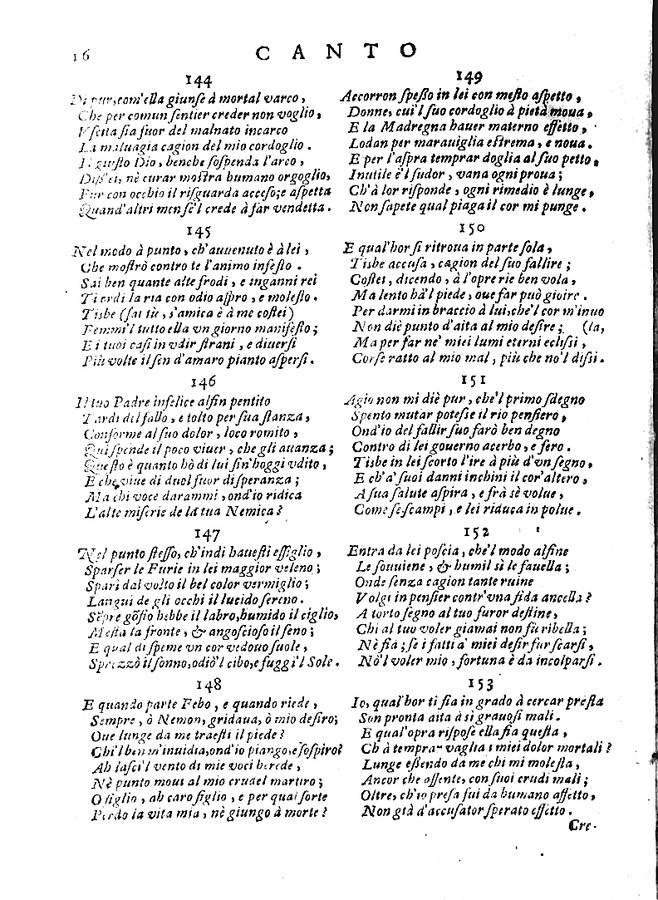 16
CANTO
144
Di pur, com'ella giunse à mortal varco,
Che per comun sentier creder non voglio,
Vscita sia fuor del malnato incarco
La maluagia cagion del mio cordoglio.
Il giusto Dio, benche sospenda l'arco,
Diss'ei, nè curar mostra humano orgoglio,
Pur con occhio il risguarda acceso; e aspetta
Quand'altri men se'l crede à far vendetta.
145
Nel modo à punto, ch'auuenuto è à lei,
Che mostrò contro te l'animo infesto.
Sai ben quante alte frodi, e inganni rei
Ti ordì la ria con odio aspro, e molesto.
Tisbe (sai tù, s'amica è à me costei)
Femmi'l tutto ella vn giorno manifesto;
E i tuoi casi in vdir strani, e diuersi
Più volte il sen d'amaro pianto aspersi.
146
Il tuo Padre infelice alfin pentito
Tardi del fallo, e tolto per sua stanza,
Conforme al suo dolor, loco romito,
Qui spende il poco viuer, che gli auanza;
Questo è quanto hò di lui fin'hoggi vdito,
E che viue di duol fuor di speranza;
Ma chi voce darammi, ond'io ridica
L'alte miserie de la tua Nemica?
147
Nel punto stesso, ch'indi hauesti essiglio,
Sparser le Furie in lei maggior veleno;
Sparì dal volto il bel color vermiglio;
Languì de gli occhi il lucido sereno.
Sēpre gōfio hebbe il labro, humido il ciglio,
Mesta la fronte, & angoscioso il seno;
E qual di speme vn cor vedouo suole,
Sprezzò il sonno, odiò'l cibo, e fuggì'l Sole.
148
E quando parte Febo, e quando riede,
Sempre, ò Nemon, gridaua, ò mio desiro;
Oue lunge da me traesti il piede?
Chi'l ben m'inuidia, ond'io piango, e sospiro?
Ah lasci'l vento di mie voci herede,
Nè punto moui al mio crudel martiro;
O figlio, ah caro figlio, e per qual sorte
Perdo la vita mia, nè giungo à morte?
149
Accorron spesso in lei con mesto aspetto,
Donne, cui'l suo cordoglio à pietà moua,
E la Madregna hauer materno effetto,
Lodan per marauiglia estrema, e noua.
E per l'aspra temprar doglia al suo petto,
Inutile è'l sudor, vana ogni proua;
Ch'à lor risponde, ogni rimedio è lunge,
Non sapete qual piaga il cor mi punge.
150
E qual'hor si ritroua in parte sola,
Tisbe accusa, cagion del suo fallire;
Costei, dicendo, à l'opre rie ben vola,
Ma lento hà'l piede, oue far può gioire.
Per darmi in braccio à lui, che'l cor m'inuo
Non diè punto d'aita al mio desire; (la,
Ma per far ne' miei lumi eterni eclissi,
Corse ratto al mio mal, più che no'l dissi.
151
Agio non mi diè pur, che'l primo sdegno
Spento mutar potesse il rio pensiero,
Ond'io del fallir suo farò ben degno
Contro di lei gouerno acerbo, e fero.
Tisbe in lei scorto l'ire à più d'vn segno,
E ch'a' suoi danni inchini il cor'altero,
A sua salute aspira, e frà sè volue,
Come se scampi, e lei riduca in polue.
152
Entra da lei poscia, che'l modo alfine
Le souuiene, & humil sì le fauella;
Onde senza cagion tante ruine
Volgi in pensier contr'vna fida ancella?
A torto segno al tuo furor destine,
Chi al tuo voler giamai non fù ribella;
Nè fia; se i fatti a' miei desir fur scarsi,
Nò'l voler mio, fortuna è da incolparsi.
153
Io, qual'hor ti sia in grado à cercar presta
Son pronta aita à sì grauosi mali.
E qual'opra rispose ella fia questa,
Ch'à temprar vaglia i miei dolor mortali?
Lunge essendo da me chi mi molesta,
Ancor che assente, con suoi crudi mali;
Oltre, ch'io presa fui da humano affetto,
Non già d'accusator sperato effetto.
Cre-